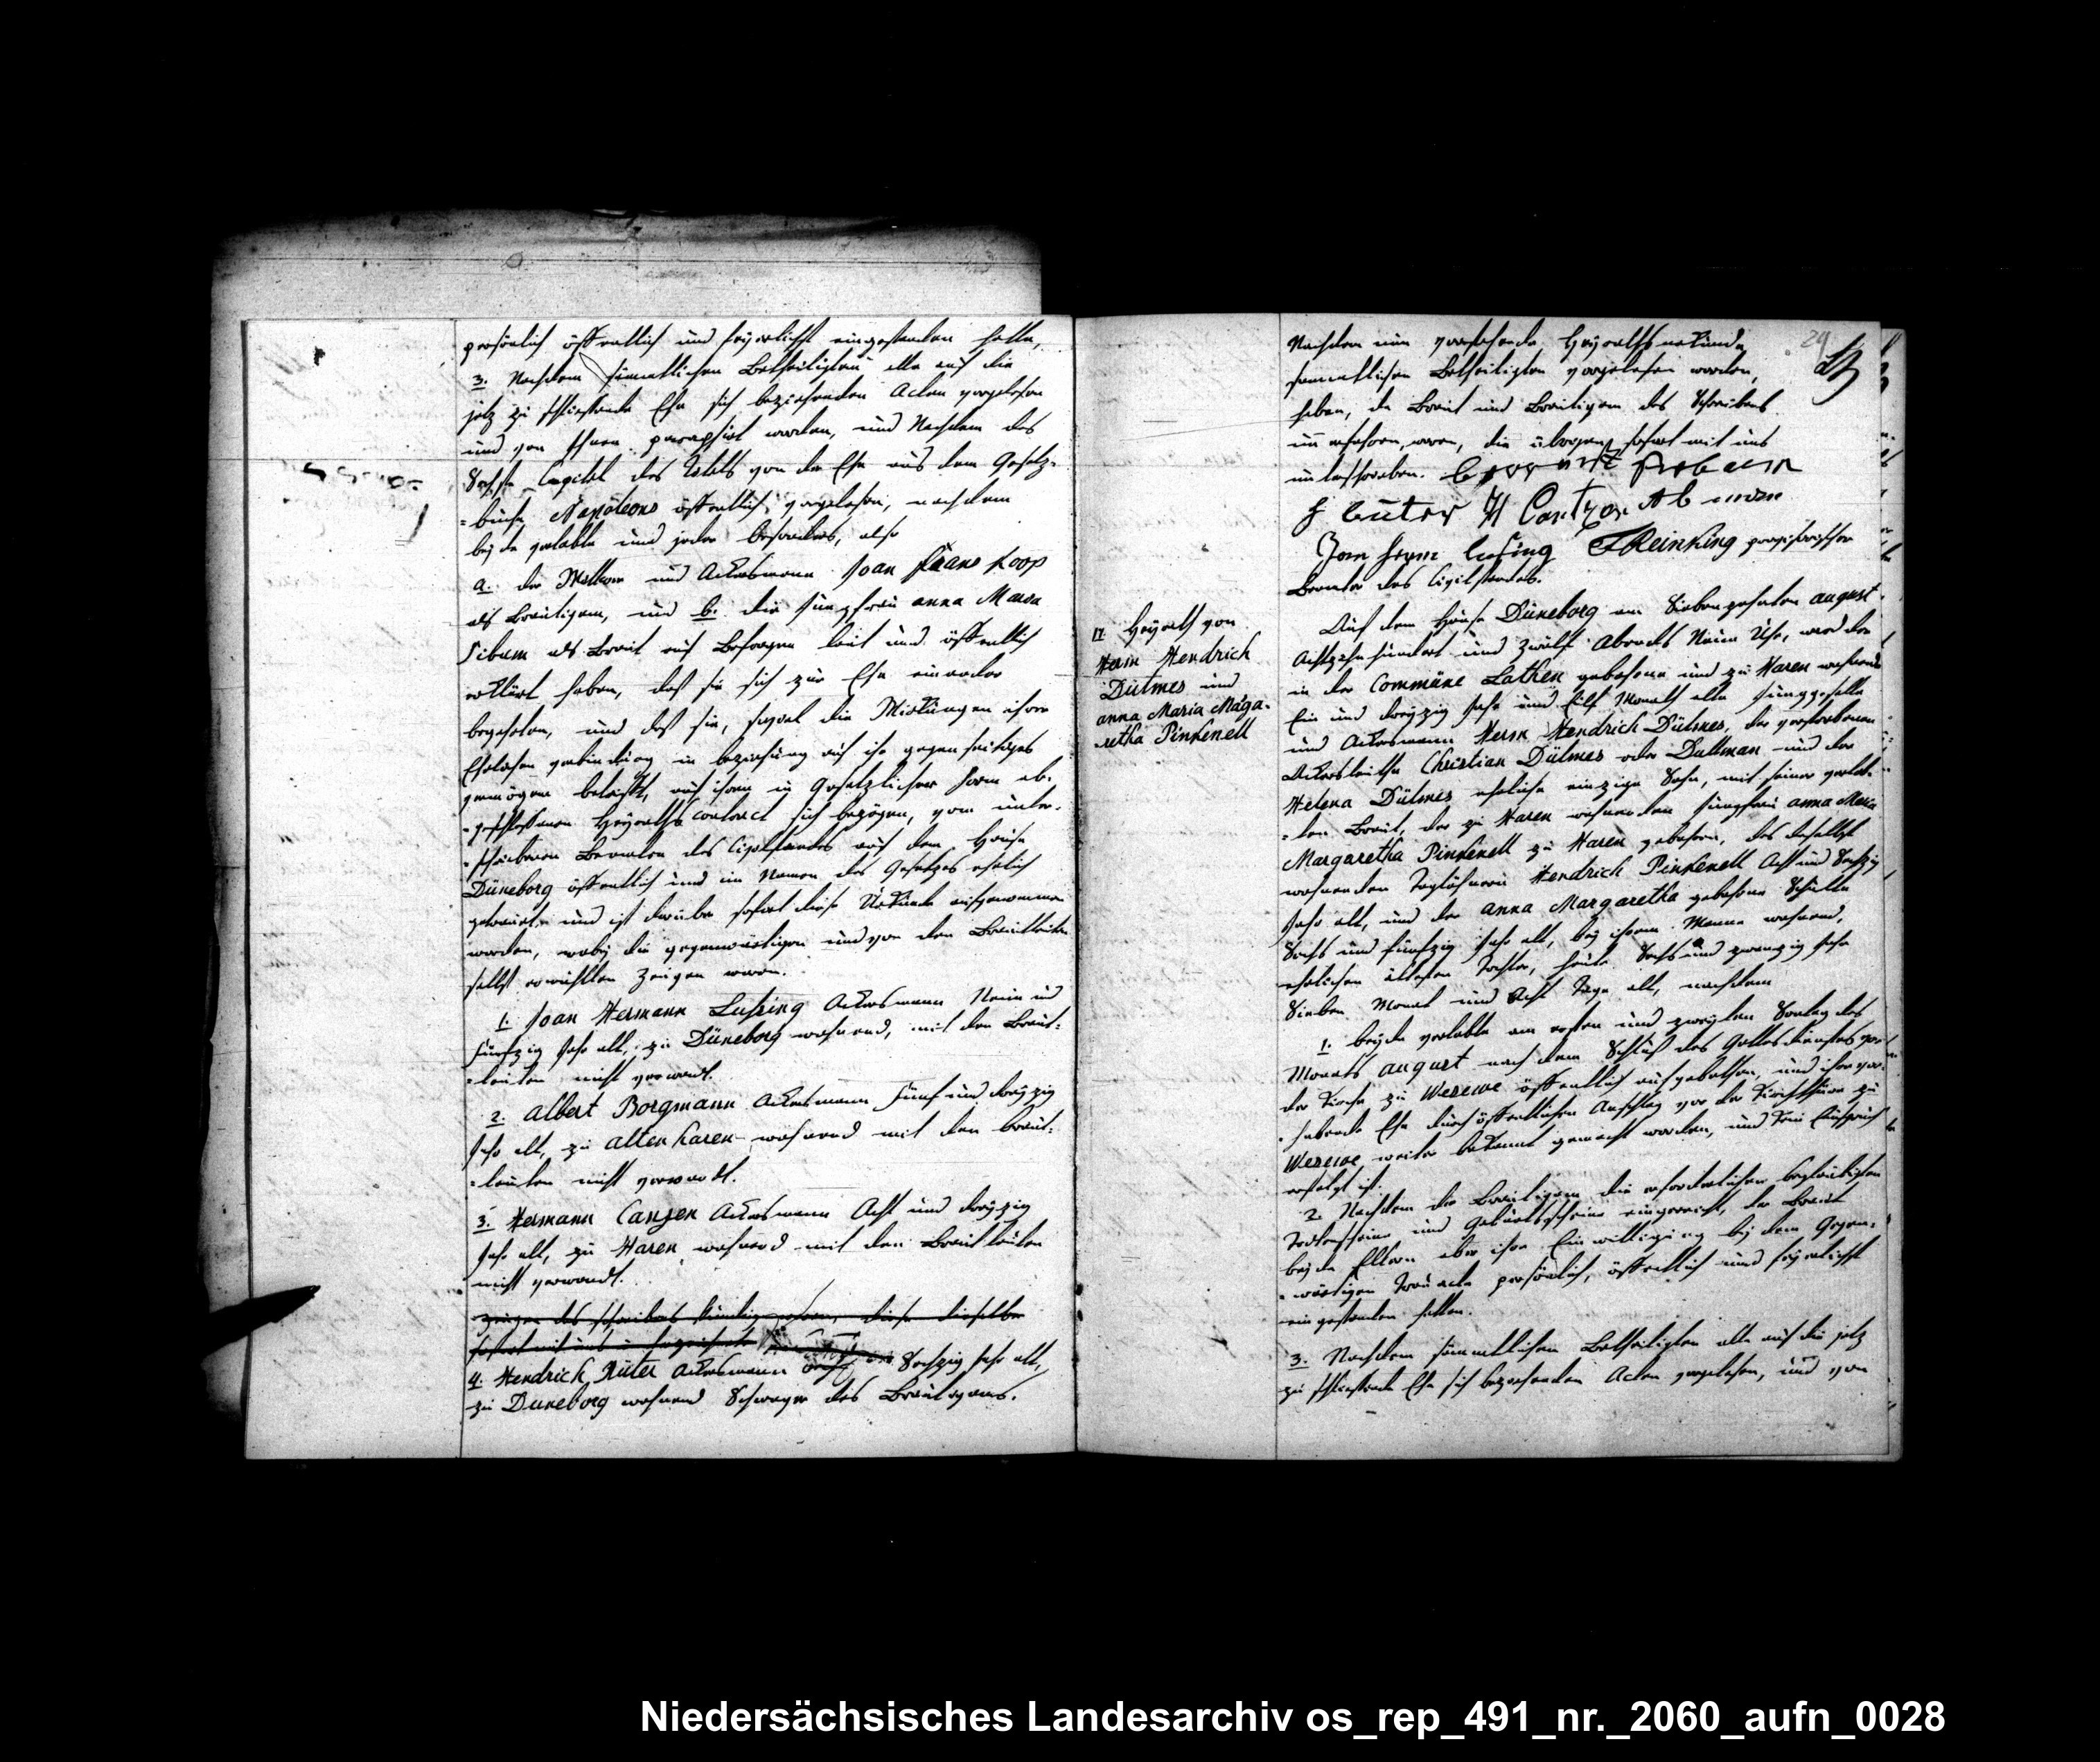 persönlich öffentlich und feyerlichst eingestanden hatte,
3. Nachdem sämmtlichen Betheiligten alle auf die
jetz zu schliessende Ehe sich beziehenden Acten vorgelesen
und von Ihnen paraphirt worden, und Nachdem das
Sechste Capitel des Titels von der Ehe aus dem Gesetz-
-buche Napoleons öffentlich vorgelesen, nachdem
beyde verlobte und jeder besonders, also
a. der Wittwer und Ackersmann Joan Frans Koop
als Bräutigam, und b. die Jungfrau anna Maria
Sibum als Braut auf Befragen laut und öffentlich
erklärt haben, daß sie sich zur Ehe einander
begehrten, und daß sie, soviel die Wirkungen ihrer
Ehelichen verbindung in beziehung auf ihr gegenseitiges
vermögen betrift, auf ihren in Gesetzlicher Form ab-
-geschlossenen Heyraths contract sich bezögen, vom unter-
-schriebenen Beamten des Civilstandes auf dem Hause
Düneborg öffentlich und im Namen des Gesetzes ehelich
getrauet, und ist darüber sofort diese Urkunde aufgenommen
worden, wobey die gegenwärtigen und von den Brautleuten
selbst erwählten Zeugen waren.
1. Joan Hermann Lusing Ackersmann Neun und
Fünfzig Jahr alt, zu Düneborg wohnend, mit den Braut-
-leuten nicht verwandt.
2. Albert Borgmann Ackersmann Fünf und dreyzig
Jahr alt, zu alten haren wohnend mit den Braut-
-leuten nicht verwandt.
3. Hermann Canzen Ackersmann Acht und dreyzig
Jahr alt, zu Haren wohnend mit den Brautleuten
nicht verwandt.
4. Hendrich Rüter Ackersmann Sechzig Jahr alt,
zu Duneborg wohnend Schwager des Bräutigams.
24
Nachdem nun vorstehende Heyrathsurkunde
sammtlichen Betheiligten vorgelesen worden,
haben, da Braut und Bräutigam des Schreibens
unerfahren, waren, die übrigen sofort mit uns
unterschrieben.
Joan herm lusing F Reinking provisorischer
Beamter des Civilstandes.
17. Heyrath von
Herm Hendrich
Dülmes und
anna Maria Maga-
retha Pinkenell
Auf dem Hause Düneborg am Siebenzehnten august
Achtzehnhundert und zwölf Abends Neun Uhr, ward der
in der Commüne Lathen gebohrene und zu Haren wohnende
Ein und dreyzig Jahr und Eilf Monath alte Junggeselle
und Ackersmann Herm Hendrich Dülmes, der verstorbenen
Ackersleuthe Christian Dülmes oder Dallman und der
Helena Dülmes eheliche einzige Sohn, mit seiner verlob-
-ten Braut, der zu Haren wohnenden Jungfrau anna Maria
Margaretha Pinkenell zu Haren gebohren, des daselbst
wohnenden Taglöhners Hendrich Pinkenell Acht und Sechzig
Jahr alt, und der anna Margaretha gebohrne Schulte
Sechs und fünfzig Jahr alt, bey ihrem Manne wohnend,
ehelichen ältesten Tochter, heute Sechs und zwanzig Jahr
Sieben Monat und Acht Tage alt, nachdem
1. beyde verlobte am ersten und zweyten Sontag des
Monats august nach dem Schluß des Gottesdienstes vor
der Kirche zu Wesewe öffentlich aufgebothen, und ihre vor-
-habende Ehe durch öffentlichen Anschlag vor der Kirchthüre zu
Wesewe weiter bekannt gemacht worden, und kein Einspruch
erfolgt ist.
2. Nachdem der Bräutigam die erforderlichen beglaubigten
Todtenscheine und Geburthsscheine eingereicht, der Braut
beyde Eltern aber ihre Einwilligung bey dem Gegen-
-wärtigen Trauacte persönlich, öffentlich und feyerlichst
eingestanden hatten.
3. Nachdem sämmtlichen Betheiligten alle auf die jetz
zu schliessende Ehe sich beziehenden Acten vorgelesen, und von
Niedersächsisches Landesarchiv os_rep_491_nr._2060_aufn_0028